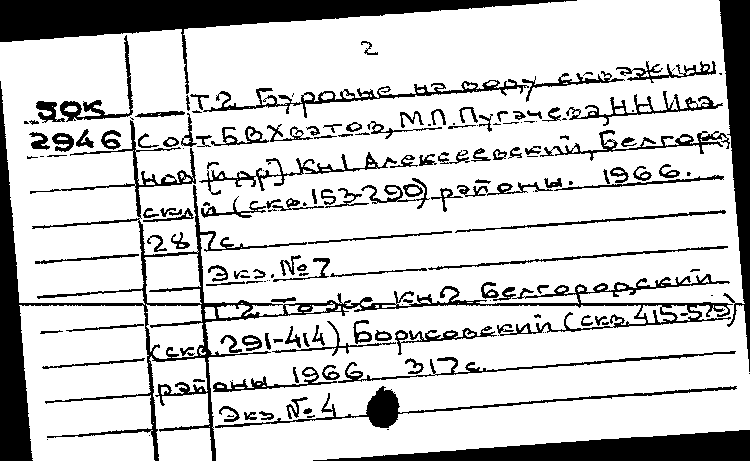 2
50к Т.2 Буровые на воду скважины
2946 Сост. Б.В Хватов, М.П. Пугачева, Н Н Ива
нов [и др] Кн 1 Алексеевский, Белгород
ский (скв. 153-290) районы. 1966.
287с.
Экз. № 7
Т. 2. То же. Кн. 2 Белгородский
(скв. 291-414), Борисовский (скв. 415-529)
районы. 1966. 317с.
Экз. № 4.